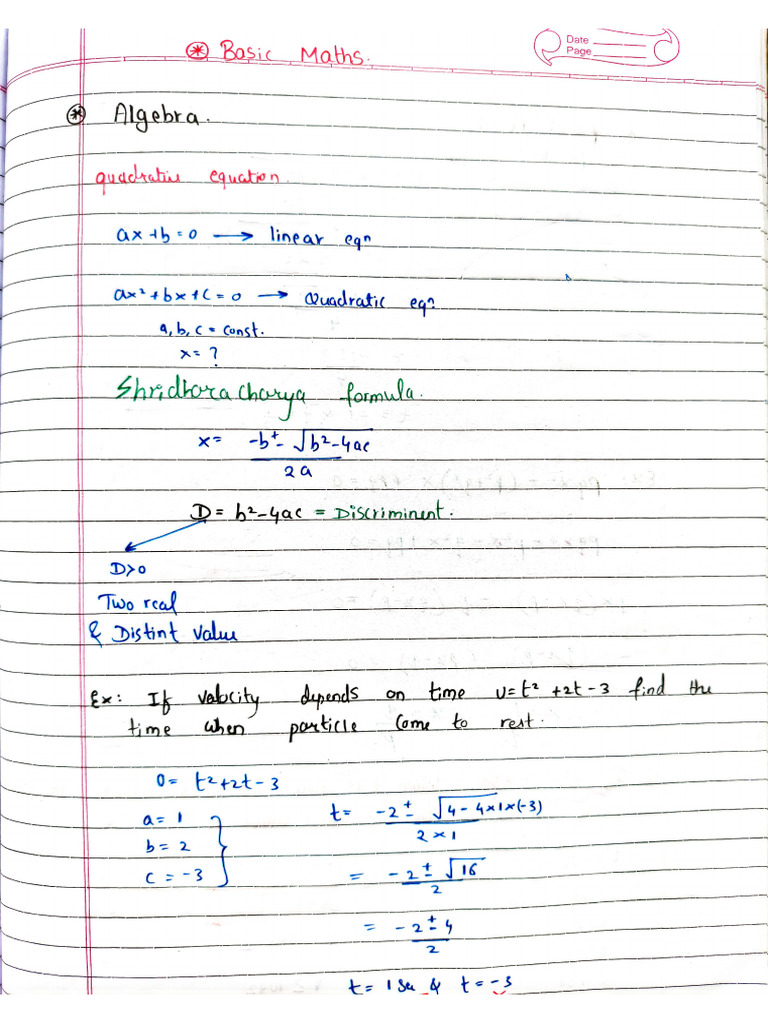 Date
Page
⊛ Basic Maths.
⊛ Algebra.
quadratic equation.
ax+b=0 → linear eqn
ax²+bx+c=0 → Quadratic eqn
a, b, c = const.
x= ?
Shridhoracharya formula.
x= -b ± √b²-4ac
2a
D= b²-4ac = Discriminent.
D>0
Two real
& Distint value
Ex: If velocity depends on time v=t²+2t-3 find the
time when particle come to rest.
0= t²+2t-3
a= 1
b= 2
c= -3
t= -2 ± √4-4×1×(-3)
2×1
= -2 ± √16
2
= -2 ± 4
2
t= 1 sec & t= -3